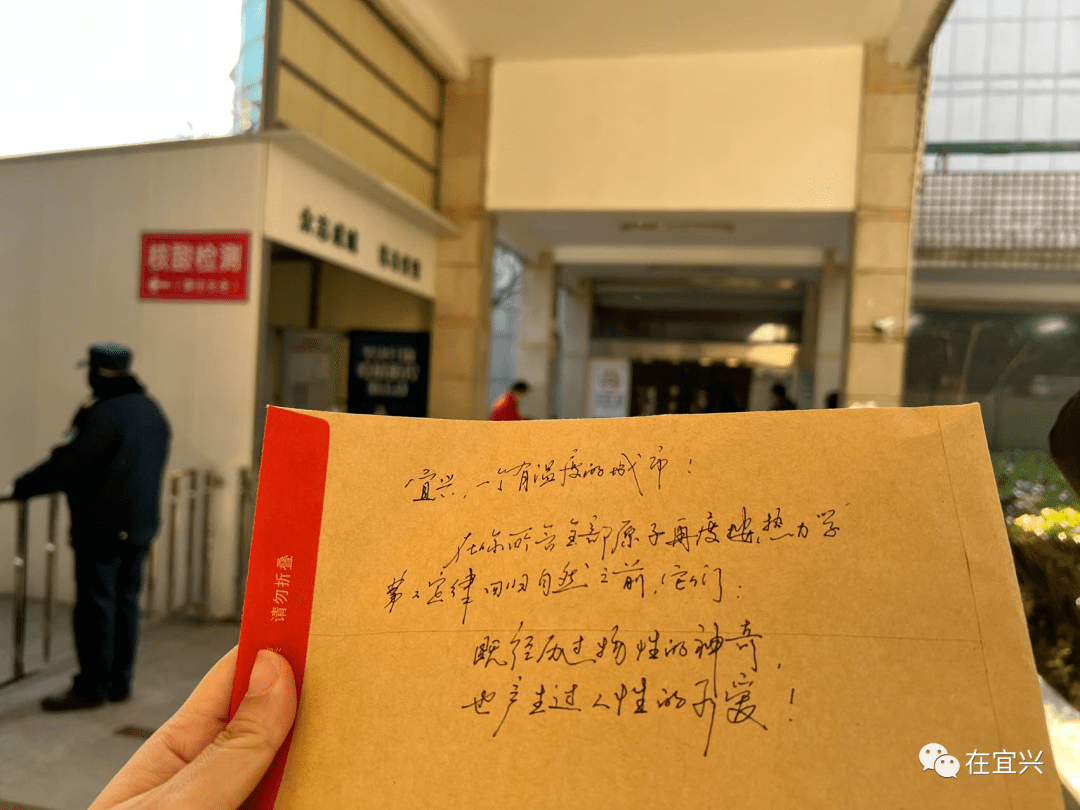 众志成城
核酸检测
宜兴，一个有温度的城市！
在你所含全部原子再度按热力学
第二定律回归自然之前，它们：
既经历过物性的神奇，
也产生过人性的可爱！
请勿折叠
在宜兴